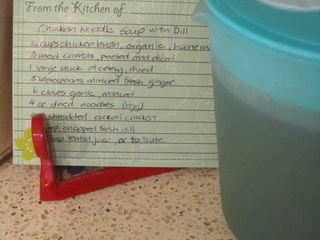 From the Kitchen of
Chicken Noodle Soup with Dill
10 cups chicken broth, organic, homem
3 med carrots, peeled and diced
1 large stalk of celery, diced
3 tablespoons minced fresh ginger
6 cloves garlic, minced
4 oz dried noodles
shredded cooked chicken
chopped fresh dill
lemon juice, or to taste